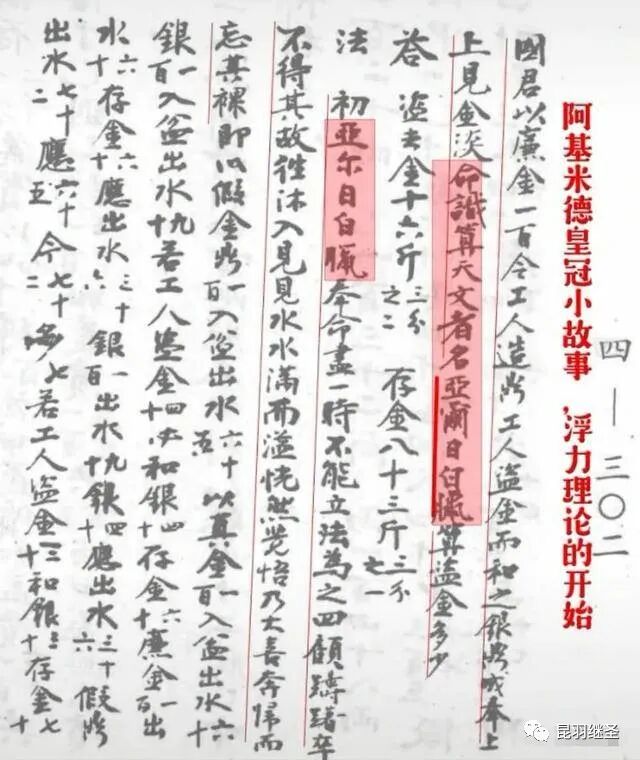 四—三〇二
阿基米德皇冠小故事,浮力理论的开始
國君以廉金一百令工人造鼎工人盜金而和之銀鼎成奉上
上見金淡命識算天文者名亞爾日白臘算盜金多少
答 盜去金十六斤三分之二 存金八十三斤三分之一
法 初亞尔日白臘奉命盡一時不能立法為之四顧躊躇卒
不得其故往沐入見見水水滿而溢恍然覺悟乃大喜奔歸而
忘其裸即以假金鼎一百入盆出水六十五 以真金一百入盆出水六十
銀一百入盆出水九十若工人盜金四十必和銀四十存金六十廉金一百出
水六十存金六十應出水三十六銀一百出水九十銀四十應出水三十六假鼎
出水七十二應六十五今七十二多七若工人盜金三十和銀三十存金七十
昆羽继圣